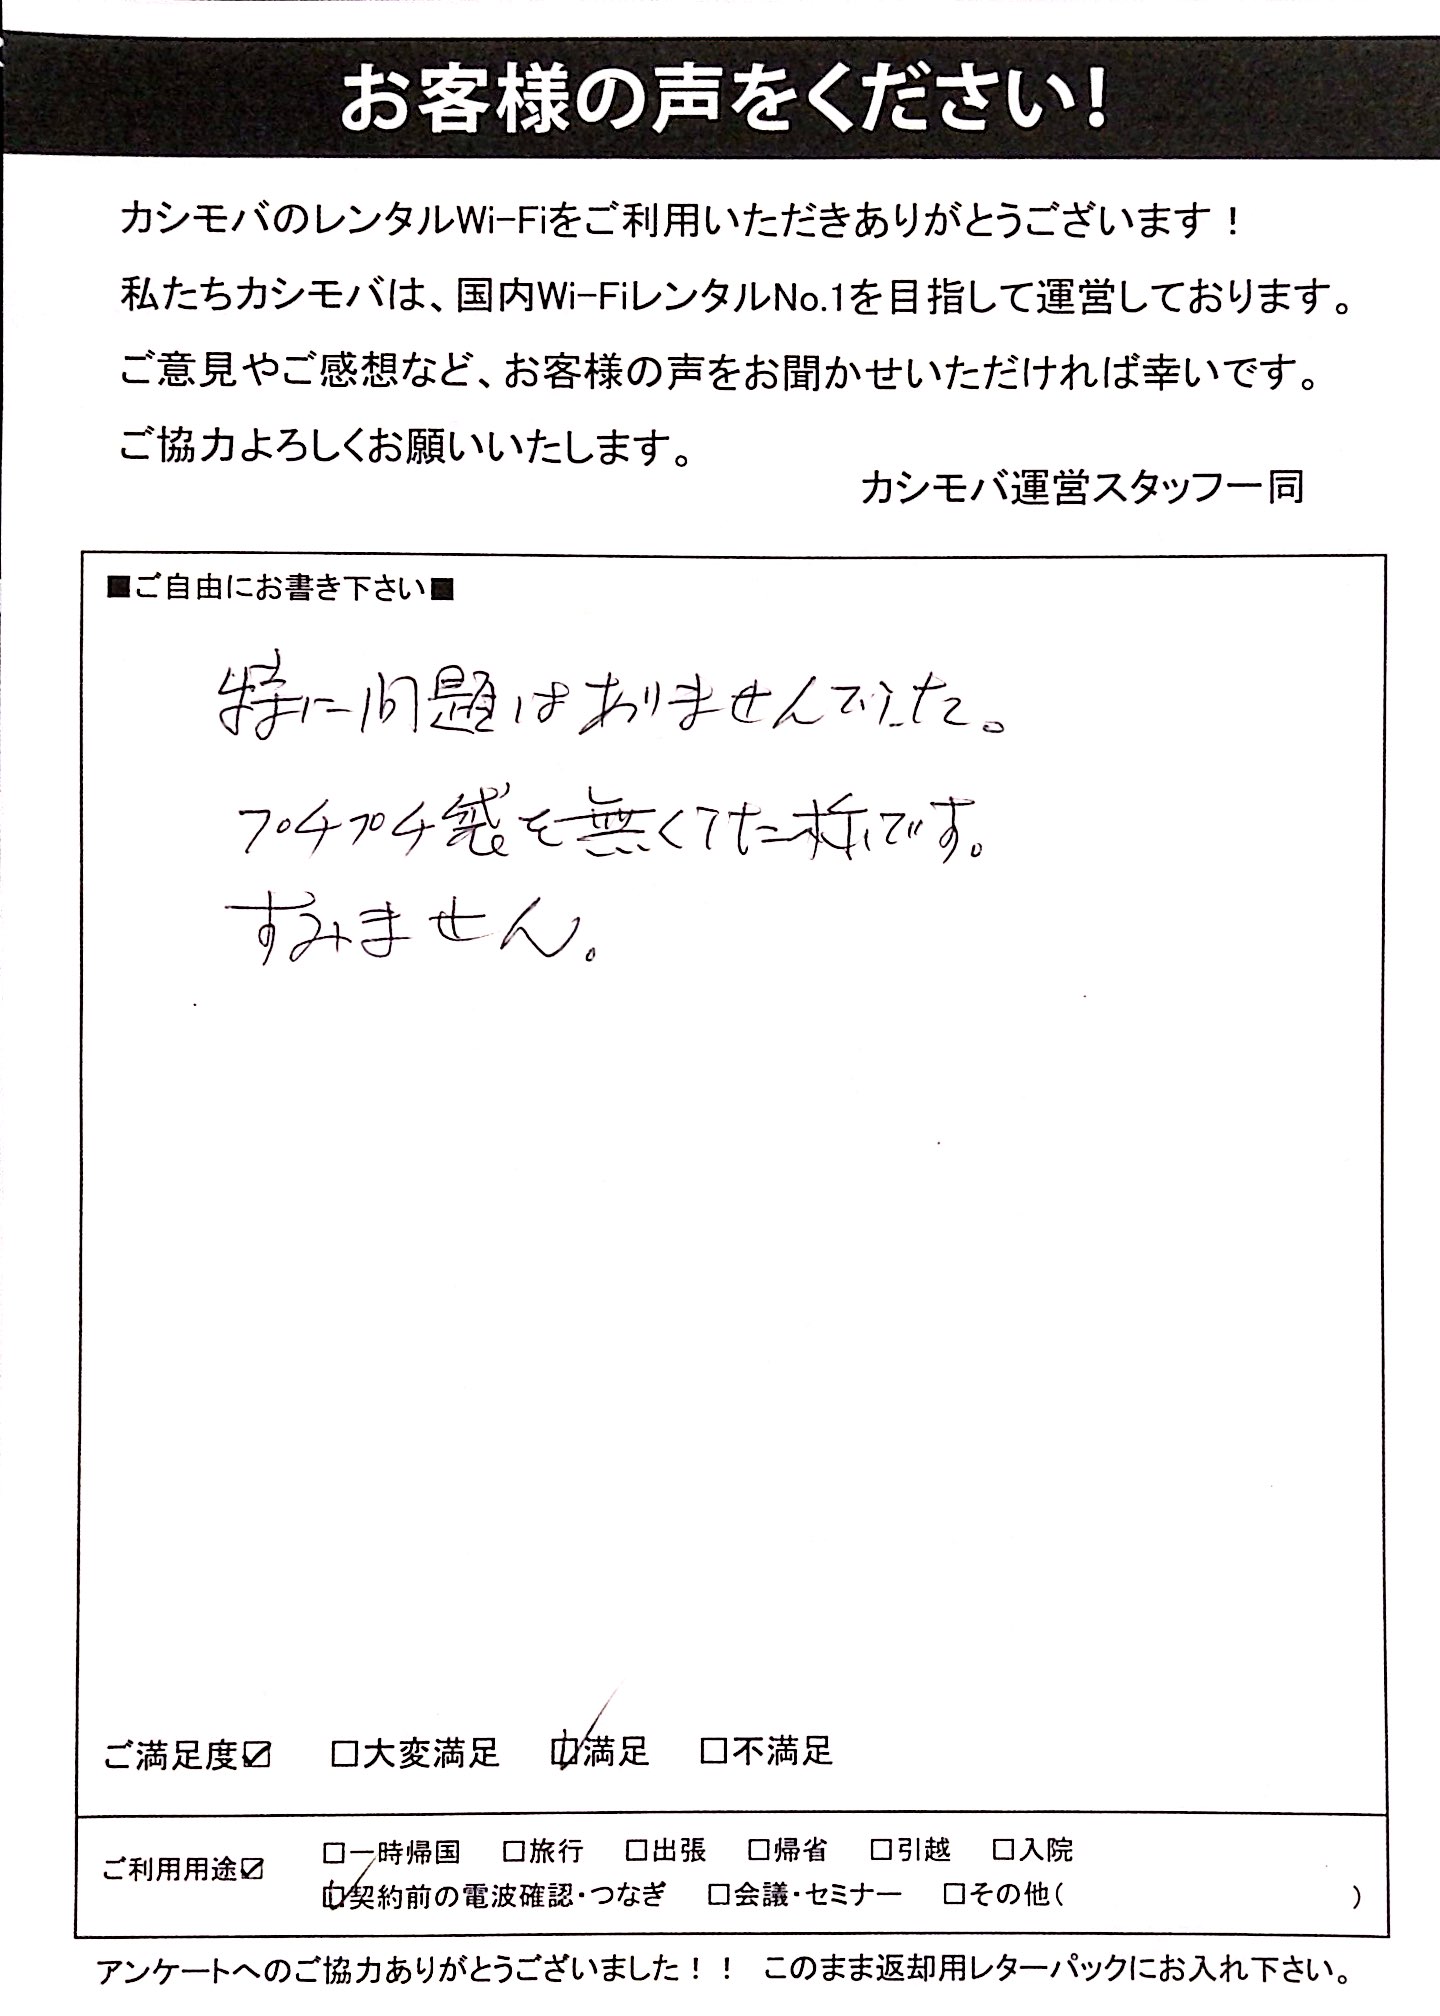 お客様の声をください！
カシモバのレンタルWi-Fiをご利用いただきありがとうございます！
私たちカシモバは、国内Wi-FiレンタルNo.1を目指して運営しております。
ご意見やご感想など、お客様の声をお聞かせいただければ幸いです。
ご協力よろしくお願いいたします。
カシモバ運営スタッフ一同
■ご自由にお書き下さい■
特に問題はありませんでした。
プチプチ袋を無くてた様です。
すみません。
ご満足度☑ □大変満足 ☑満足 □不満足
ご利用用途☑ □一時帰国 □旅行 □出張 □帰省 □引越 □入院
☑契約前の電波確認・つなぎ □会議・セミナー □その他( )
アンケートへのご協力ありがとうございました！！ このまま返却用レターパックにお入れ下さい。